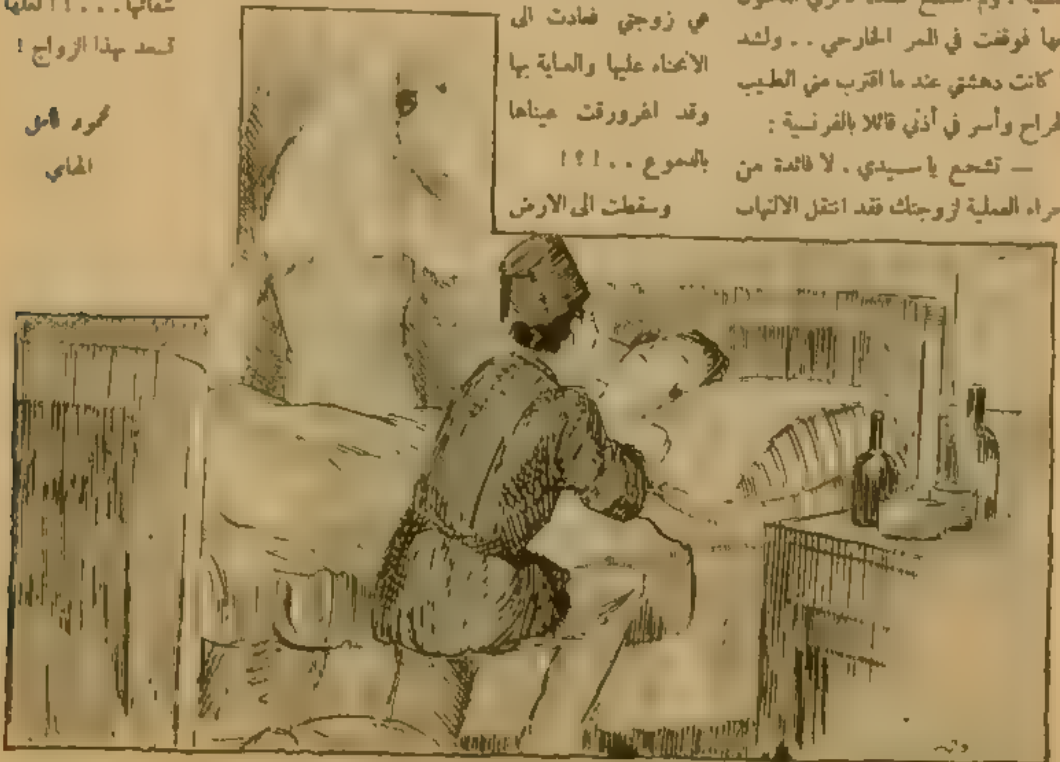 معها فوقفت في الممر الخارجي . . ولقد
كانت دهشتي عند ما اقترب مني الطبيب
الجراح وأسر في أذني قائلا بالفرنسية :
— تشجع يا سيدي . لا فائدة من
اجراء العملية لزوجتك فقد انتقل الالتهاب
هي زوجتي فعادت الى
الانحناء عليها والعناية بها
وقد اغرورقت عيناها
بالدموع . . ! ؟ !
وسقطت الى الارض
شفائها . . . ! ! لعلها
تسعد بهذا الزواج !
محمود كامل
المحامي